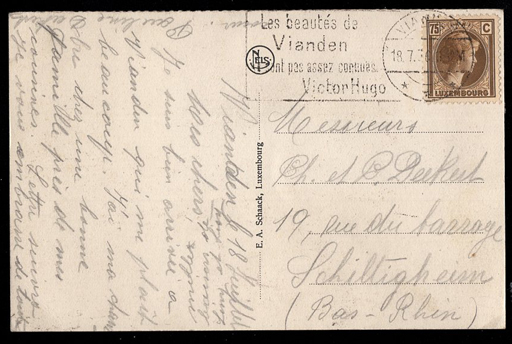 Les beautés de
Vianden
sont pas assez connues.
Victor Hugo
VIANDEN
18.7.3
75
C
LUXEMBOURG
NELS
E. A. Schaack, Luxembourg
Messieurs
Ch. et C. Deckert
19, rue du barrage
Schiltigheim
(Bas-Rhin)
Vianden le 18 Juillet
Mes chers,
Je suis bien arrivée a
Vianden qui me plait
beaucoup. J'ai ma chambre
chez une bonne
famille près de mes
Lettre suivra
Je vous embrasse de
Pauline